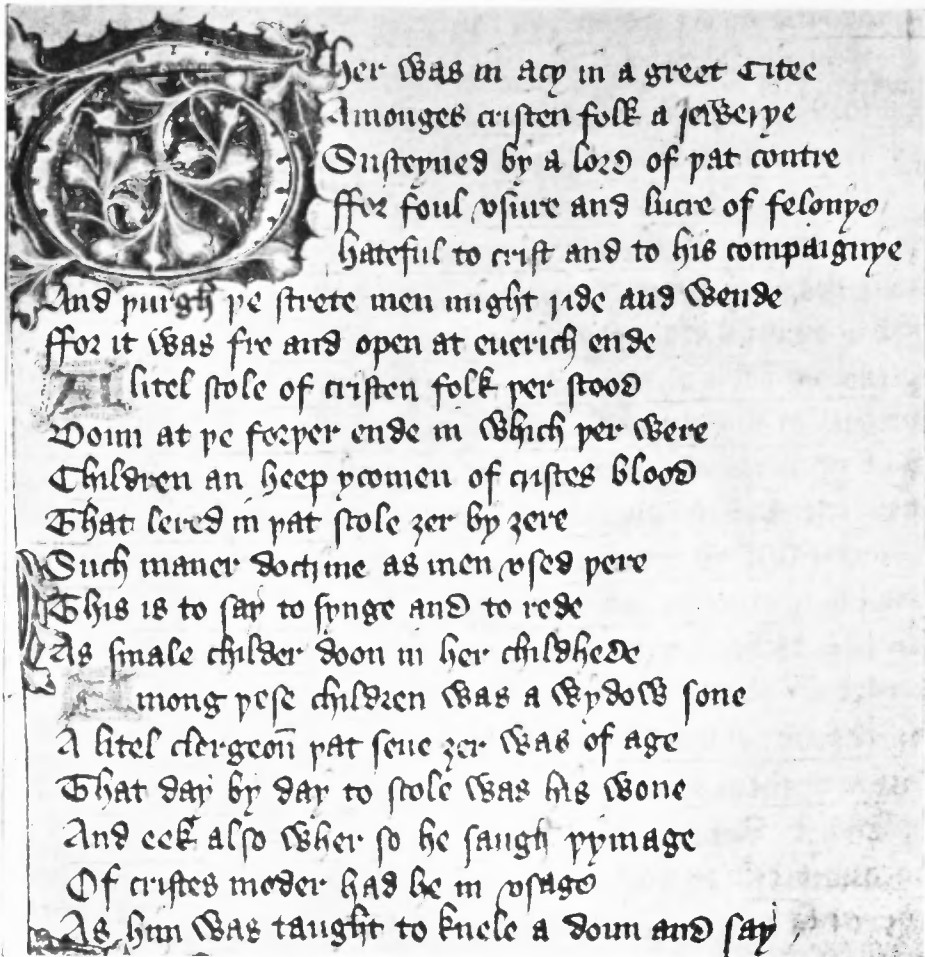 Ther was in acy in a greet Citee
Amonges cristen folk a jewerye
Susteyned by a lord of þat contre
ffor foul vsure and lucre of felonye
hateful to crist and to his compaignye
And þurgh þe strete men might ride and wende
ffor it was fre and open at euerich ende
A litel scole of cristen folk þer stood
Doun at þe forþer ende in which þer were
Children an heep ycomen of cristes blood
That lered in þat scole ȝer by ȝere
Such maner doctrine as men vsed þere
This is to say to synge and to rede
As smale childer doon in her childhede
Among þese children was a wydow sone
A litel clergeon̄ þat seue ȝer was of age
That day by day to scole was his wone
And eek also wher so he saugh þymage
Of cristes moder had he in vsage
As him was taught to knele a doun and say